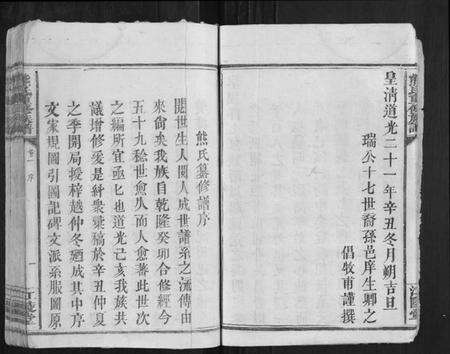 皇清道光二十一年辛丑冬月朔吉旦
瑞公十七世裔孫邑庠生卿之
倡牧甫謹撰
熊氏纂修譜序
閱世生人閱人成世譜系之流傳由
來尚矣我族自乾隆癸卯合修經今
五十九稔世愈久而人愈蕃此世次
之編所宜亟乜也道光己亥我族共
議增修爰是鈝衆彙稿於辛丑仲夏
之季開局授梓越仲冬廼成其中序
文家規圖引圖記碑文派系服圖原
卷一 序
一
江陵堂